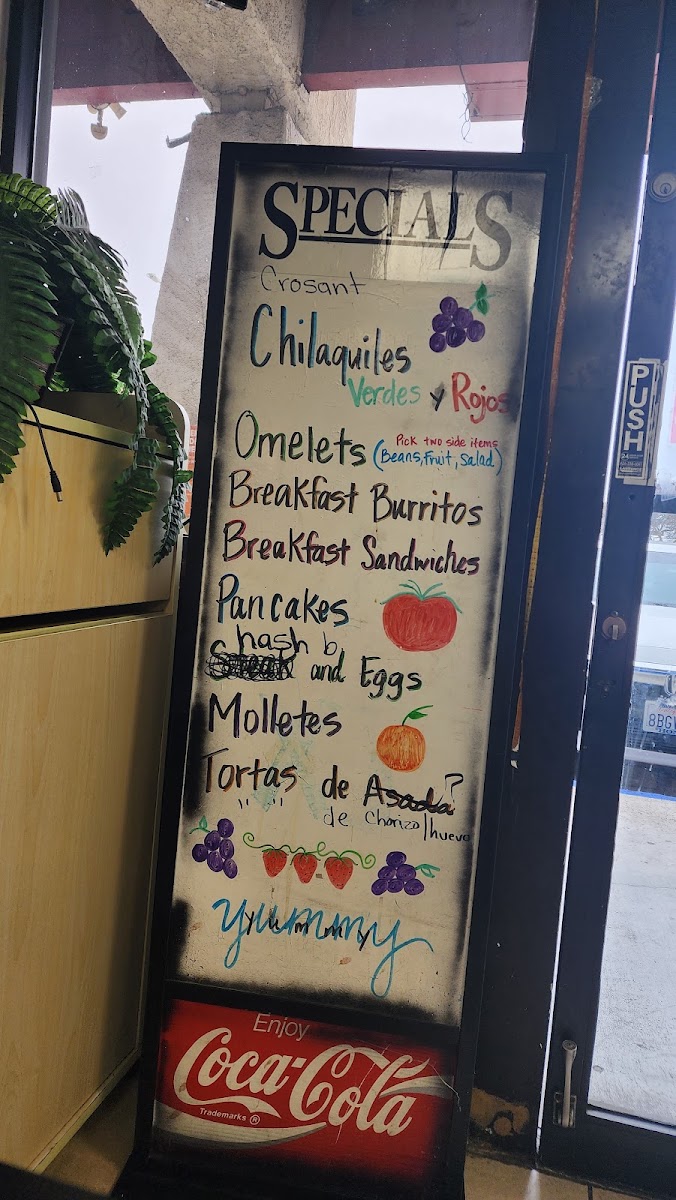 SPECIALS
Crosant
Chilaquiles
Verdes y Rojos
Omelets (Pick two side items
Beans, Fruit, Salad)
Breakfast Burritos
Breakfast Sandwiches
Pancakes
hash b
Steak and Eggs
Molletes
Tortas de Asada?
" " de Chorizo/huevo
yummy
yummy
Enjoy
Coca-Cola
Trademarks ®
PUSH
24
8BG